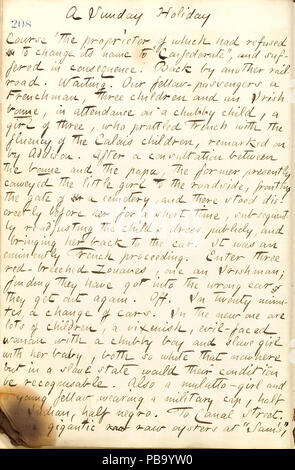 A Sunday Holiday
208
course the proprietor of which had refused
to change its name to "Confederate", and suf-
fered in consequence. Back by another rail
road. Waiting. Our fellow-passengers a
Frenchman, three children and an Irish
bonne, in attendance on a chubby child, a
girl of three, who prattled French with the
fluency of the Calais children, remarked on
by Addison. After a consultation between
the bonne and the papa, the former presently
conveyed the little girl to the roadside, fronting
the gate of a cemetery, and there stood dis-
creetly before her for a short time, subsequent-
ly readjusting the child's dress publicly, and
bringing her back to the car. It was an
eminently French proceeding. Enter three
red-breeched Zouaves, one an Irishman;
finding they have got into the wrong cars
they get out again. Off. In twenty minu-
tes, a change of cars. In the new one are
lots of children, a vixenish, evil-faced
woman with a chubby boy and slave girl
with her baby, both so white that nowhere
but in a slave state would their condition
be recognisable. Also a mulatto-girl and
young fellow wearing a military cap, half
Indian, half negro. To Canal Street.
gigantic raw oysters at "Sam's"
alamy
Image ID: PB9YW0
www.alamy.com